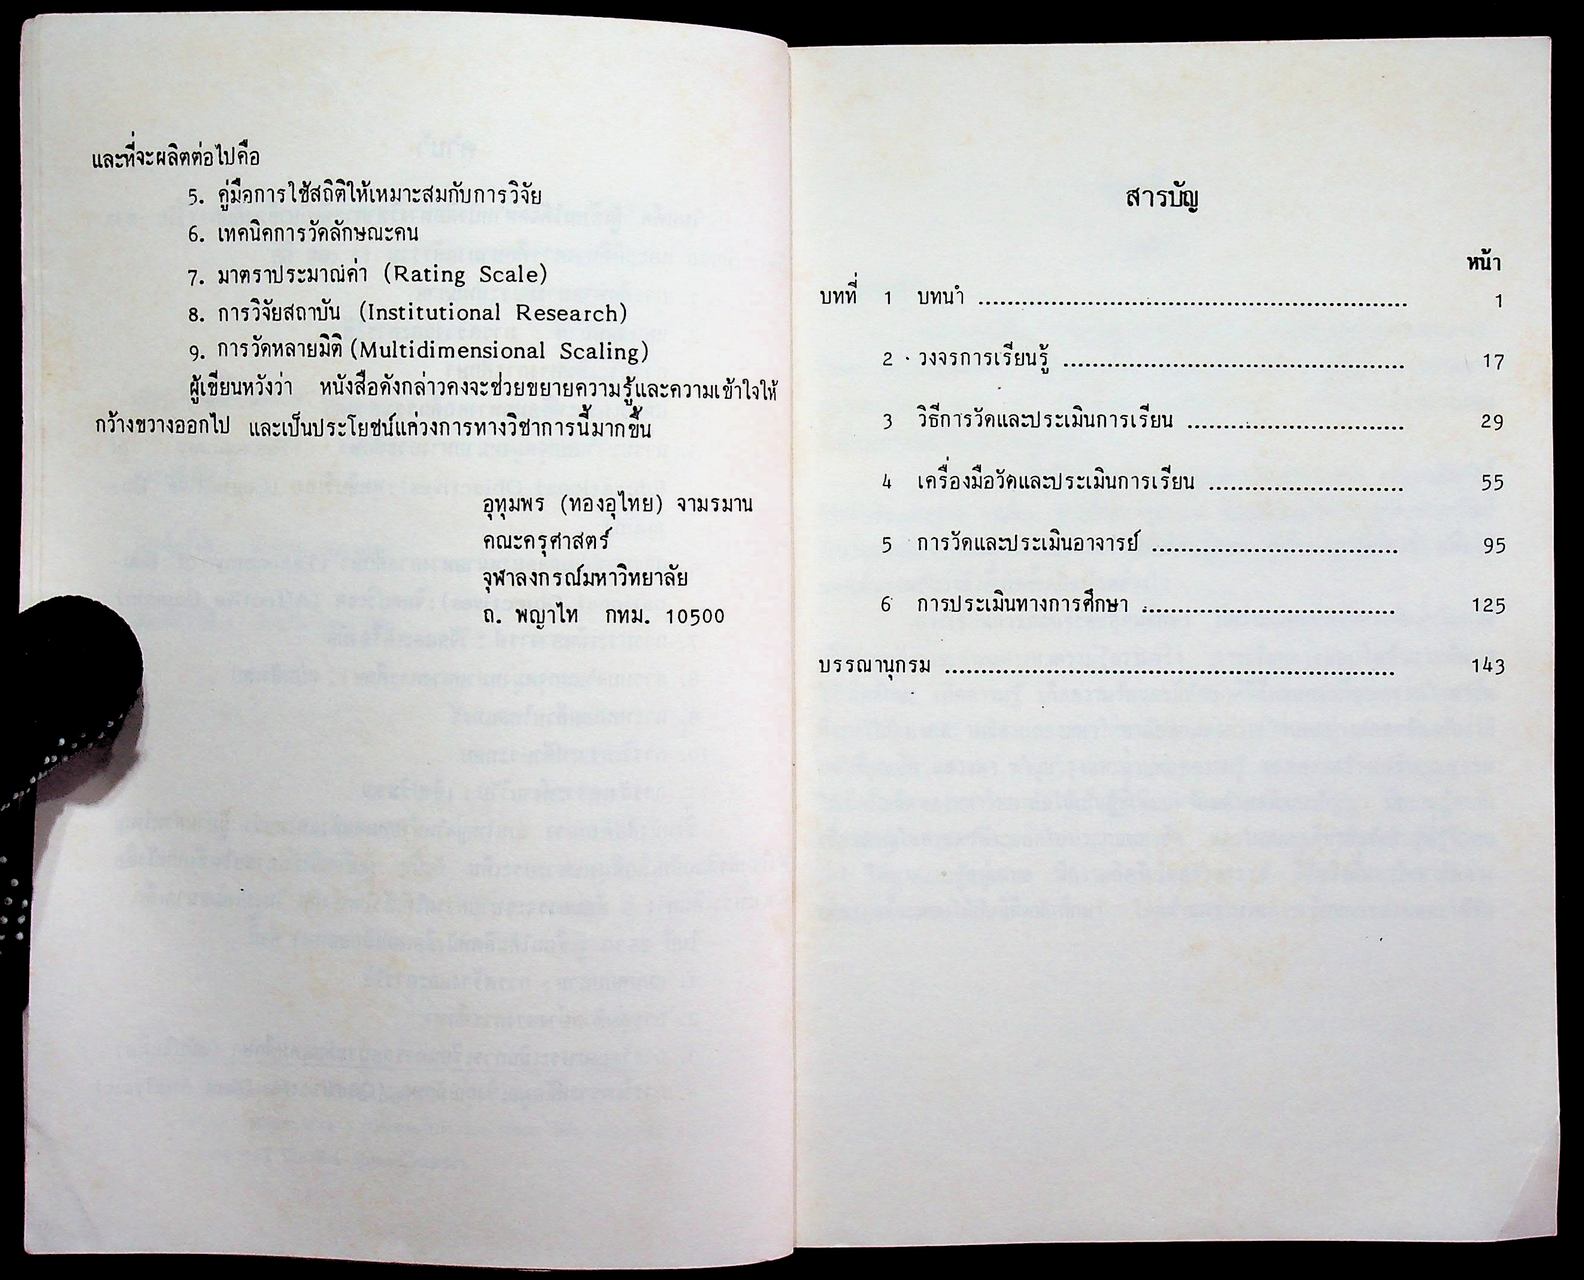 และที่จะผลิตต่อไปคือ
5. คู่มือการใช้สถิติให้เหมาะสมกับการวิจัย
6. เทคนิคการวัดลักษณะคน
7. มาตราประมาณค่า (Rating Scale)
8. การวิจัยสถาบัน (Institutional Research)
9. การวัดหลายมิติ (Multidimensional Scaling)
ผู้เขียนหวังว่า หนังสือดังกล่าวคงจะช่วยขยายความรู้และความเข้าใจให้
กว้างขวางออกไป และเป็นประโยชน์แก่วงการทางวิชาการนี้มากขึ้น
อุทุมพร (ทองอุไทย) จามรมาน
คณะครุศาสตร์
จุฬาลงกรณ์มหาวิทยาลัย
ถ. พญาไท กทม. 10500
สารบัญ
หน้า
บทที่ 1 บทนำ ........................................................ 1
2 วงจรการเรียนรู้ ........................................................ 17
3 วิธีการวัดและประเมินการเรียน ................................... 29
4 เครื่องมือวัดและประเมินการเรียน ................................ 55
5 การวัดและประเมินอาจารย์ ........................................ 95
6 การประเมินทางการศึกษา ........................................ 125
บรรณานุกรม ........................................................ 143